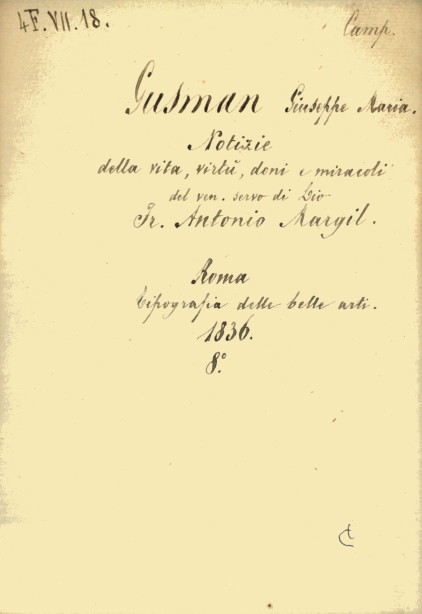 4F.VII.18.
Camp.
Gusman Giuseppe Maria.
Notizie
della vita, virtù, doni e miracoli
del ven. servo di Dio
Fr. Antonio Margil.
Roma
Tipografia delle belle arti.
1836.
8°